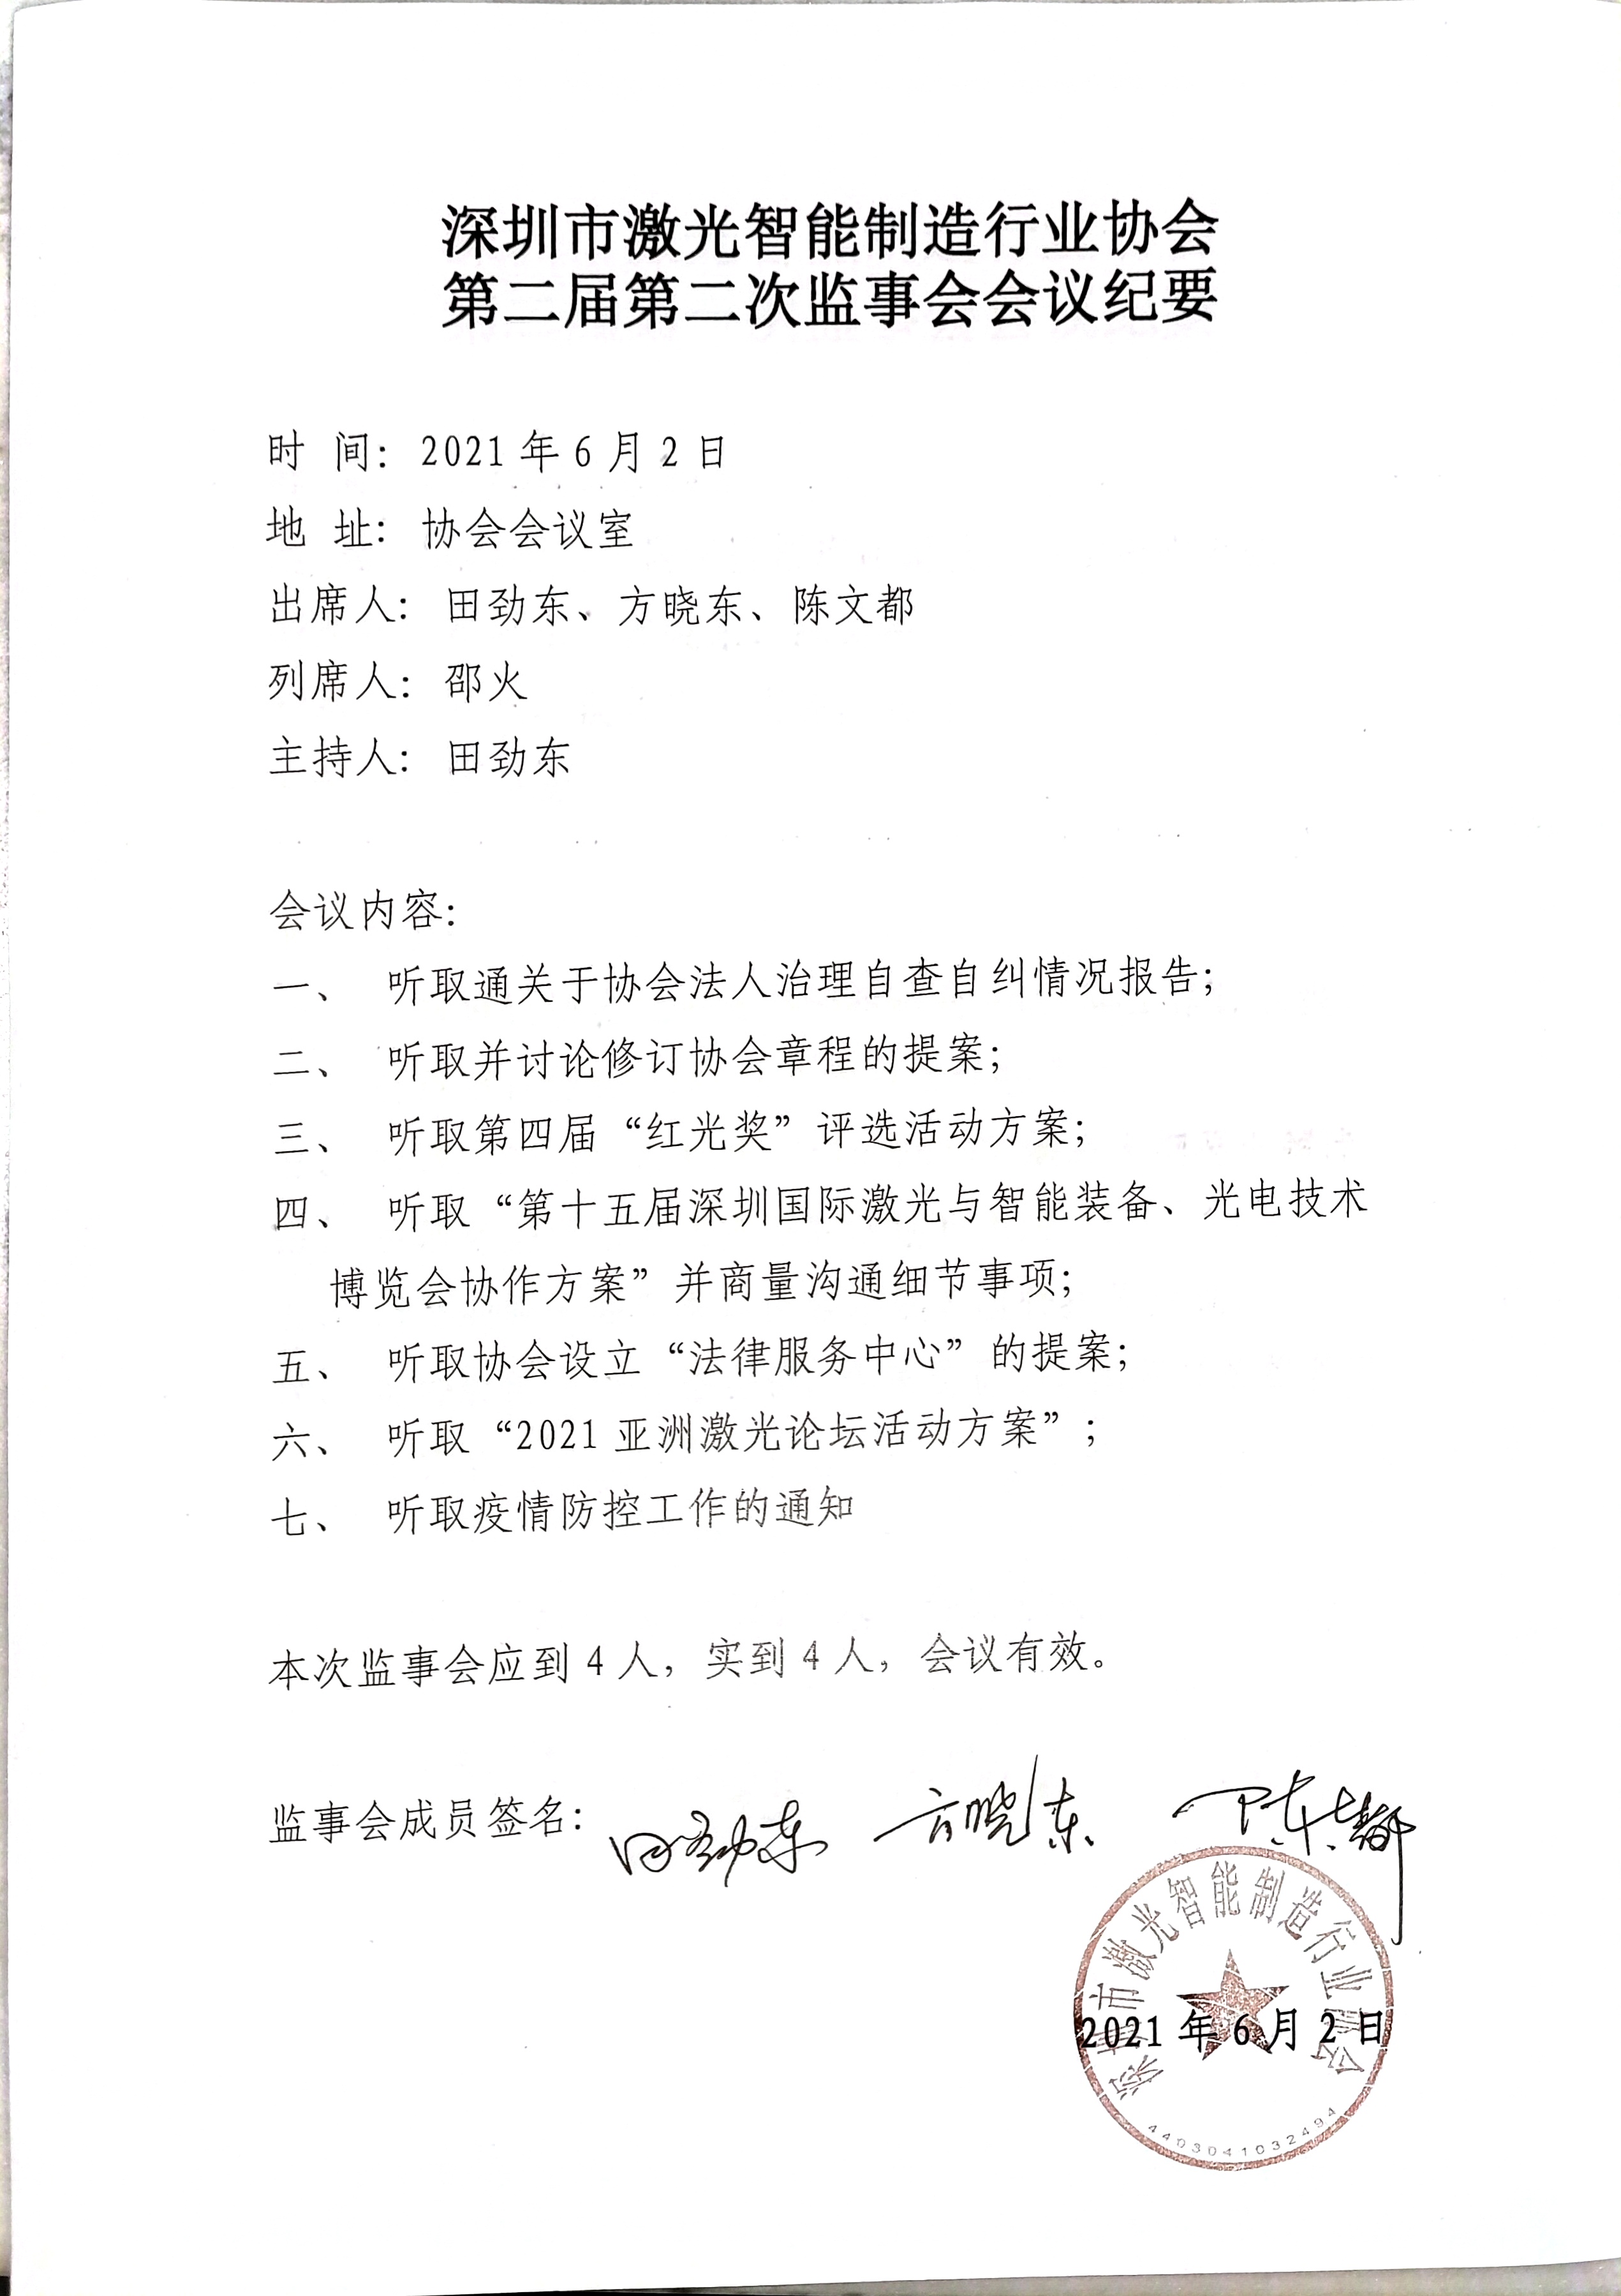 深圳市激光智能制造行业协会
第二届第二次监事会会议纪要
时 间：2021 年 6 月 2 日
地 址：协会会议室
出席人：田劲东、方晓东、陈文都
列席人：邵火
主持人：田劲东
会议内容：
一、 听取通关于协会法人治理自查自纠情况报告；
二、 听取并讨论修订协会章程的提案；
三、 听取第四届“红光奖”评选活动方案；
四、 听取“第十五届深圳国际激光与智能装备、光电技术
博览会协作方案”并商量沟通细节事项；
五、 听取协会设立“法律服务中心”的提案；
六、 听取“2021 亚洲激光论坛活动方案”；
七、 听取疫情防控工作的通知
本次监事会应到 4 人，实到 4 人，会议有效。
监事会成员签名：田劲东 方晓东 陈文都
深圳市激光智能制造行业协会
2021 年 6 月 2 日
4403041032494